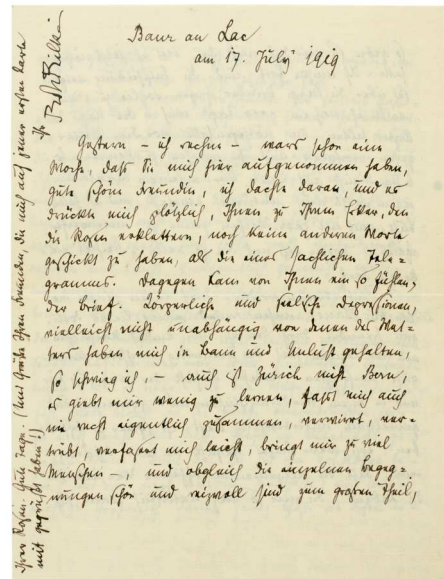 Baur au Lac
am 17. July 1919
Gestern – ich rechne – wars schon eine
Woche, daß Sie mich hier aufgenommen haben,
gute schöne Freundin, ich dachte daran, und es
drückte mich plötzlich, Ihnen zu Ihrem Erker, den
die Rosen erklettern, noch keine anderen Worte
geschickt zu haben, als die eines sachlichen Tele-
grammes. Dagegen kam von Ihnen ein so fühlen-
der Brief. Körperliche und seelische Depressionen,
vielleicht nicht unabhängig von denen des Wet-
ters haben mich in Bann und Unlust gehalten,
so schwieg ich, – auch ist Zürich nicht Bern,
es giebt mir wenig zu lernen, faßt mich auch
nie recht eigentlich zusammen, verwirrt, ver-
treibt, zerfasert mich leicht, bringt mir zu viel
Menschen –, und obgleich die einzelnen Begeg-
nungen schön und reizvoll sind zum großen Theil,
Ihrer Rosen gute Tage. (Um Grüße Ihren Freunden, die mich auf jener ersten Karte
mit gegrüßt haben!)
Ihr